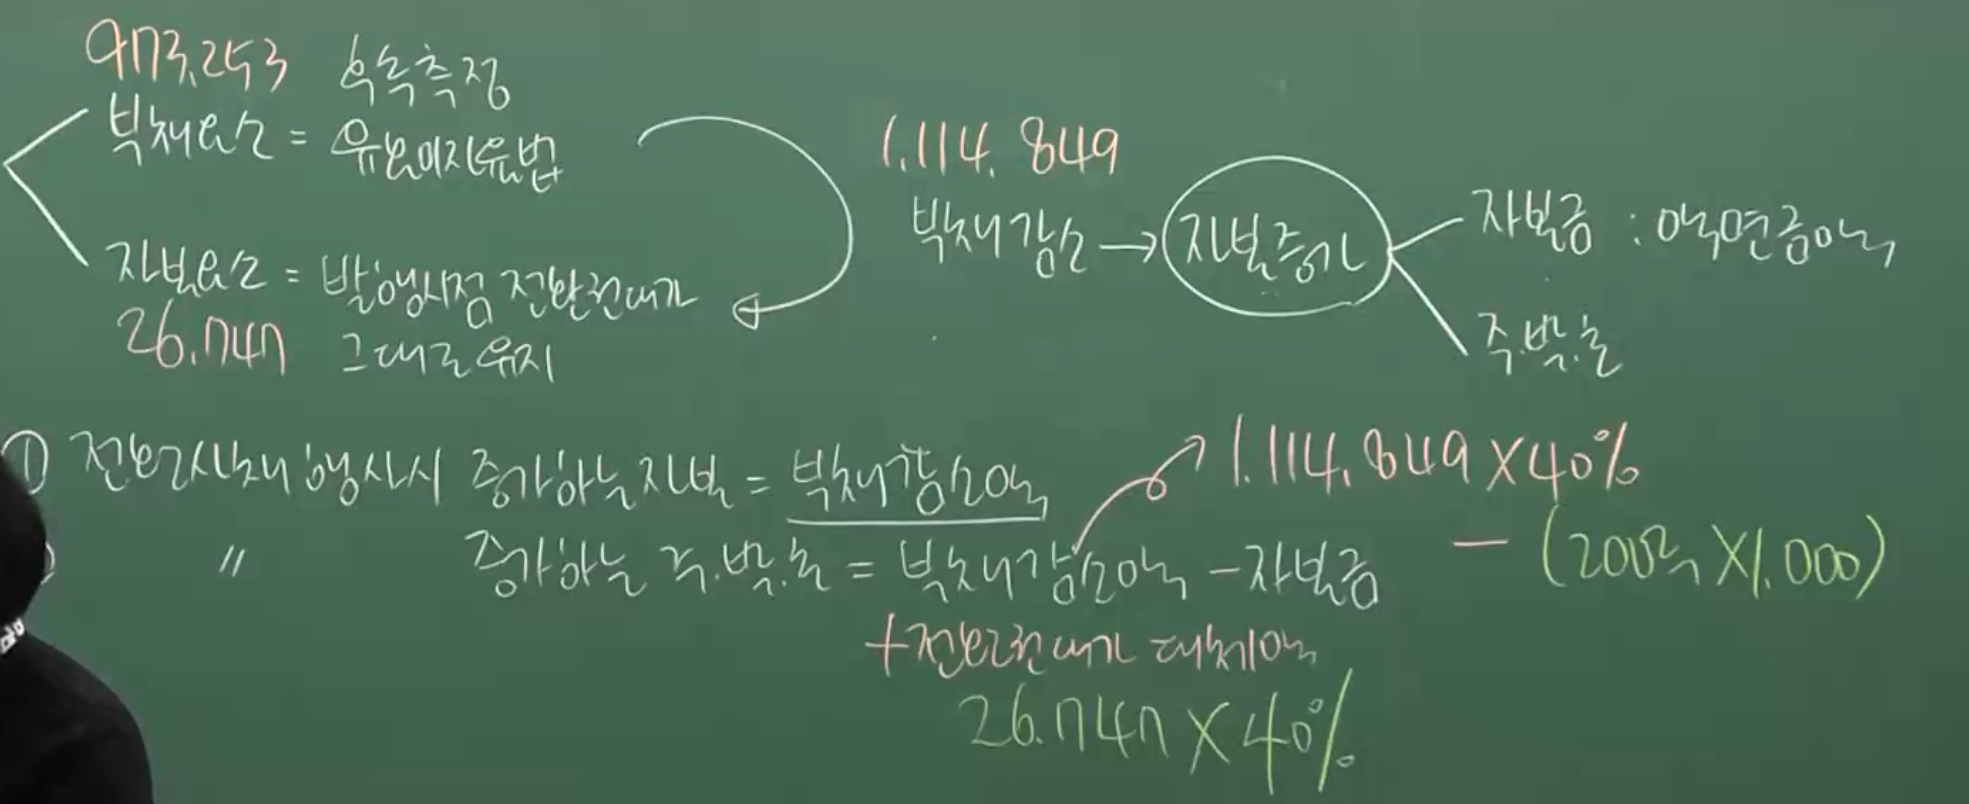 973,253 후속측정
부채요소 = 유효이자율법
자본요소 = 발행시점 전환권대가
26,747 그대로 유지
1,114,849
부채감소 → 자본증가
자본금 : 액면금액
주.발.초
① 전환사채 행사시 증가하는 자본 = 부채감소액
1,114,849 × 40%
〃 증가하는 주.발.초 = 부채감소액 - 자본금
- (200주 × 1,000)
+ 전환권대가 대체액
26,747 × 40%